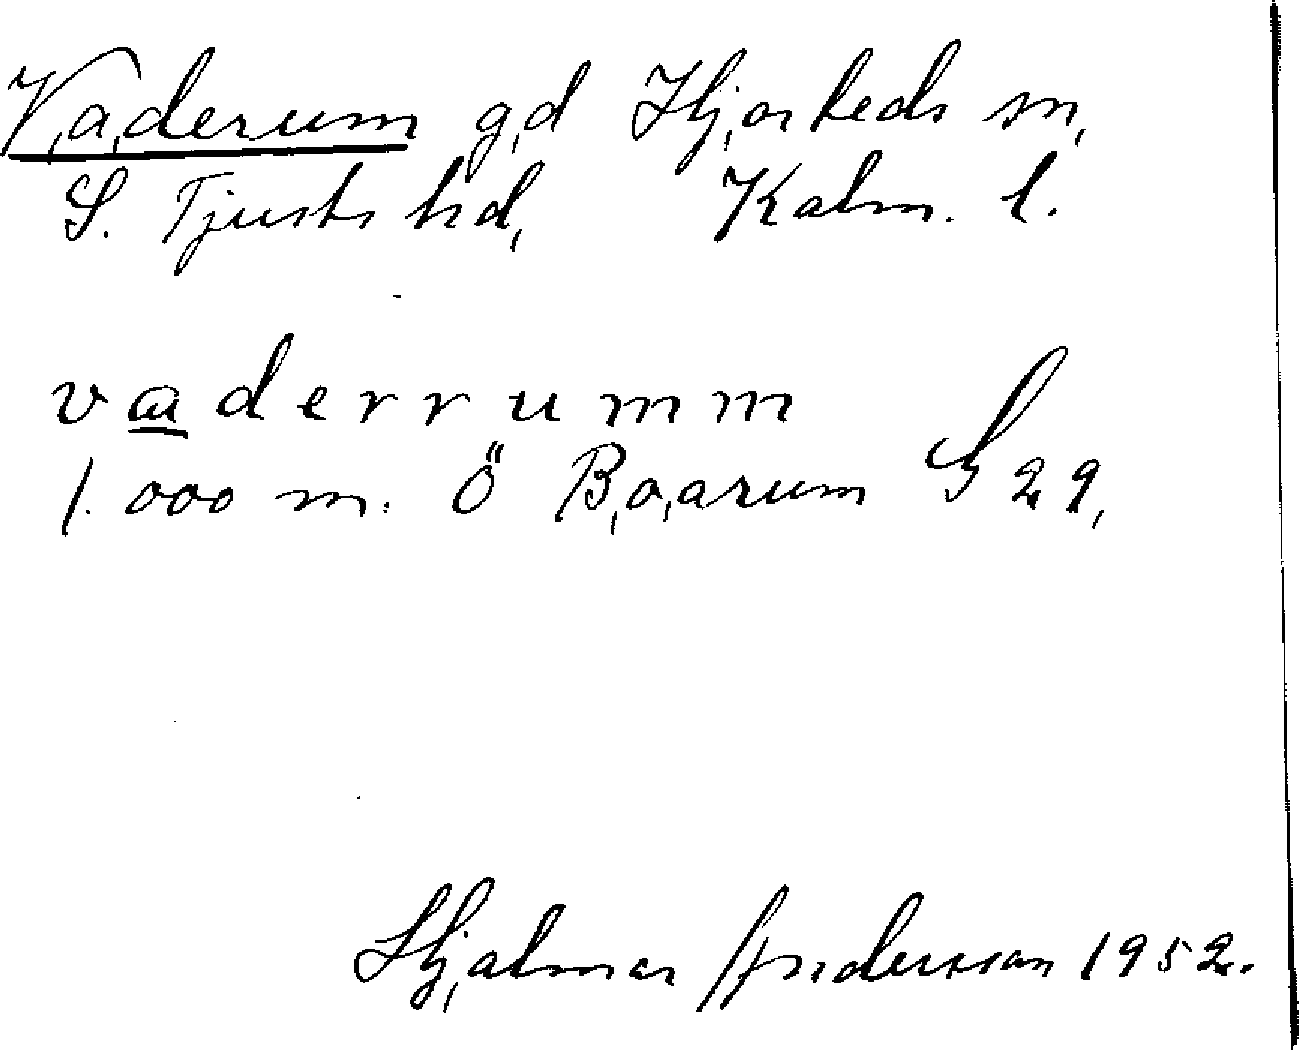 V,a,derum g,d Hj,orteds sn,
S. Tjusts hd, Kalm. l.
v a d e r r u m m
1.000 m. Ö B,o,arum S 29,
Hj,almar Andersson 1952.